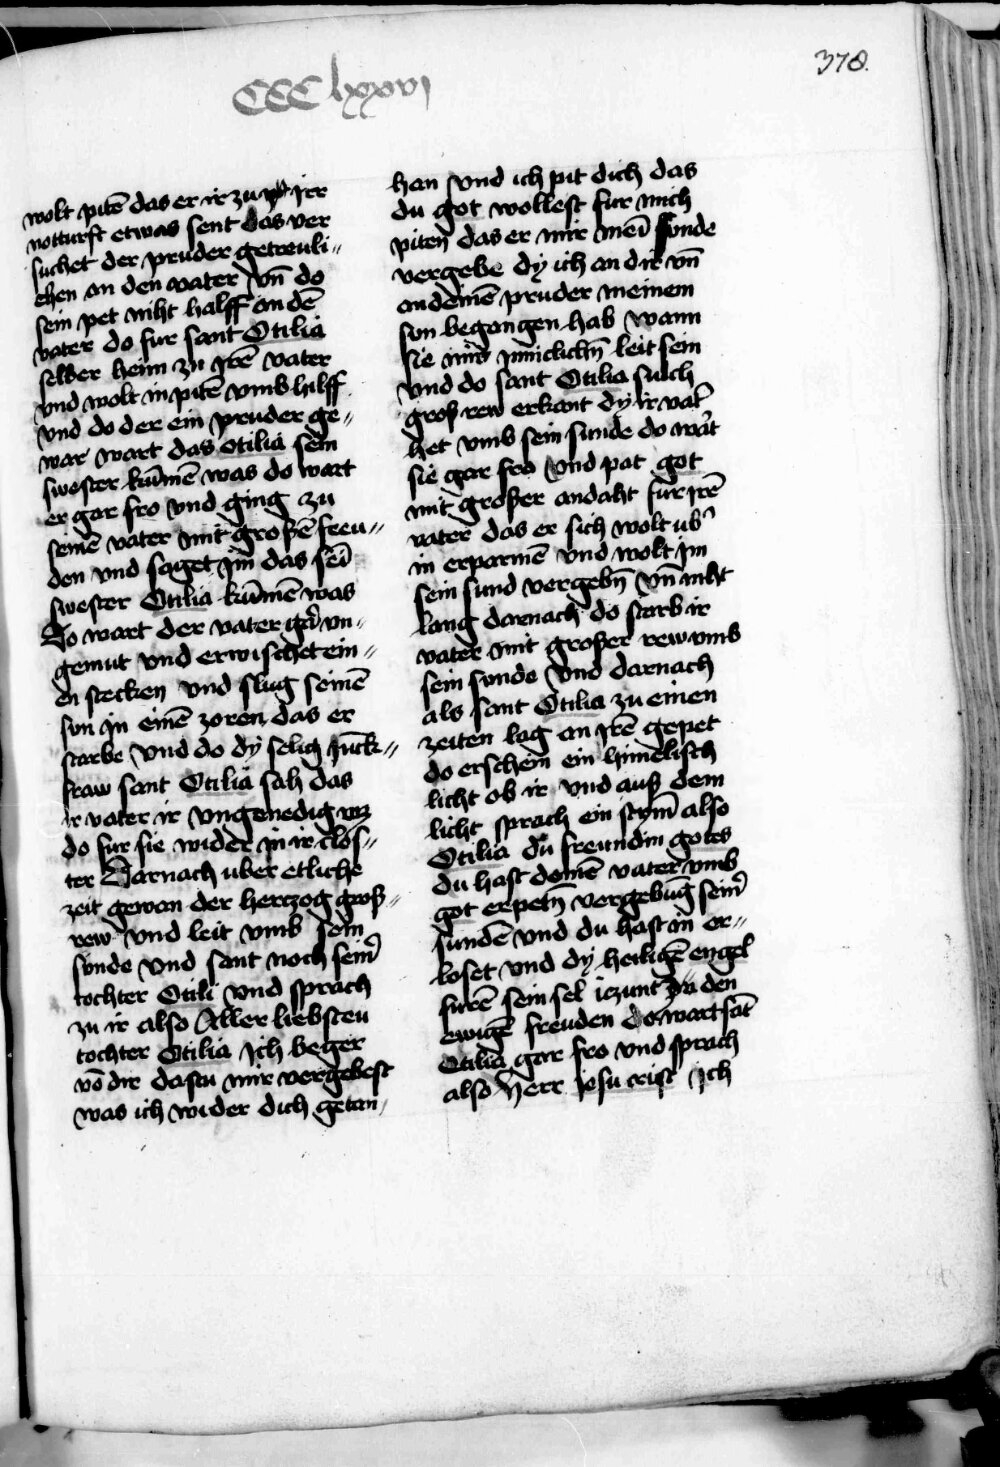 CCC lxxvj
378.
wolt pitē das er ir zu irr
notturft etwas sent das ver
suchet der pruder getreuli"
chen an den vater vn̄ do
sein pet niht halff an dē
vater do fur sant Otilia
selber heim zu jrē vater
vnd wolt in pitē vmb hilff
vnd do der ein pruder ge"
war wart das otilia sein
swester kūmē was do wart
er gar fro vnd ging zu
seinē vater mit großē freu"
den vnd saget jm das sei̅
swester Otilia kūmē was
Do wart der vater gar vn"
gemut vnd erwischet ein"
en stecken vnd slug seinē
sun jn einē zoren das er
starbe vnd do dy selig jūck"
fraw sant Otilia sah das
ir vater ir vngenedig wz
do fur sie wider in ir clos"
ter Darnach uber etliche
zeit gewan der hertzog groß"
rew vnd leit vmb sein
sunde vnd sant noch sein̄
tochter Otili vnd sprach
zu ir also Aller liebsten
tochter Otilia jch beger
vō dir dastu mir vergebest
was ich wider dich getan
han vnd ich pit dich das
du got wollest fur mich
piten das er mir mei̅ sunde
vergebe dy ich an dir vn̄
an deinē pruder meinem
sun begangen hab wann
sie mir jnnicklichn̄ leit sein
vnd do sant Otilia sulch
groß rew erkant dy ir vat̄
het vmb sein sunde do wart
sie gar fro vnd pat got
mit großer andaht fur jrē
vater das er sich wolt ub̄
in erparmē vnd wolt jm
sein sund vergebn̄ vn̄ niht
lang darnach do starb ir
vater mit großer rew vmb
sein sunde vnd darnach
als sant Otilia zu einen
zeiten lag an jrē gepet
do erschein ein himelisch
licht ob ir vnd auß dem
licht sprach ein stym̄ also
Otilia du freundin gotes
du hast deinē vater vmb
got erpetn̄ vergebūg sein̄
sundē vnd du hast in er"
loset vnd dy heiligē engel
furē sein sel iczunt zu den
ewigē freuden do wart sāt
Otilia gar fro vnd sprach
also Herr jesu crist jch